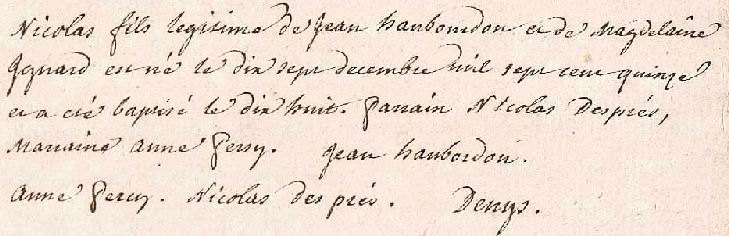 Nicolas fils legitime de Jean haubourdon et de Magdelaine
Gynard est né le dix sept decembre mil sept cent quinze
et a eté baptisé le dix huit. Parrain Nicolas Després,
Marraine Anne Persy. Jean haubordon.
Anne Percy. Nicolas des prés. Denys.